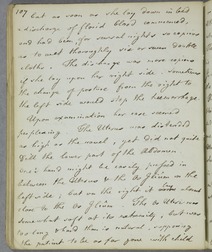 107
but no soon as she lay down in bed
a discharge of fluid blood commenced,
and had been for several nights so copious
as to wet thoroughly six or seven double
cloths. The discharge was more copious
if she lay upon her right side. Sometimes
the change of posture from the right to
the left side would stop the haemorrhage.
Upon examination her case seemed
perplexing. The Uterus was distended
as high as the navel, yet did not quite
fill the lower part of the Abdomen
One's hand might be easily pushed in
between the Uterus & the Os Ilium on the
left side, but on the right it was
close to the Os Ilium. The Os Uteri was
somewhat soft at its extremity, but was
too long & hard than is natural, supposing
the patient to be so far gone with child